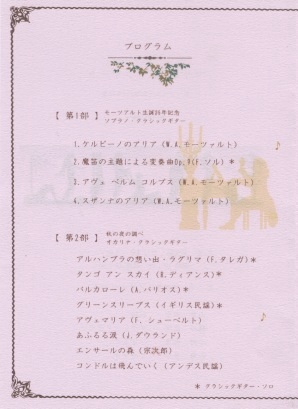 プログラム
【 第1部 】 モーツアルト生誕25年記念
ソプラノ・クラシックギター
1.ケルビーノのアリア (W.A.モーツァルト)
2.魔笛の主題による変奏曲Op.9(F.ソル) *
3.アヴェ ベルム コルプス (W.A.モーツァルト)
4.スザンナのアリア (W.A.モーツァルト)
【 第2部 】 秋の夜の調べ
オカリナ・クラシックギター
アルハンブラの想い出・ラグリマ (F.タレガ) *
タンゴ アン スカイ (R.ディアンス) *
バルカローレ (A.バリオス) *
グリーンスリーブス (イギリス民謡) *
アヴェマリア (F. シューベルト)
あふるる涙 (J.ダウランド)
エンサールの森 (宗次郎)
コンドルは飛んでいく (アンデス民謡)
* クラシックギター・ソロ